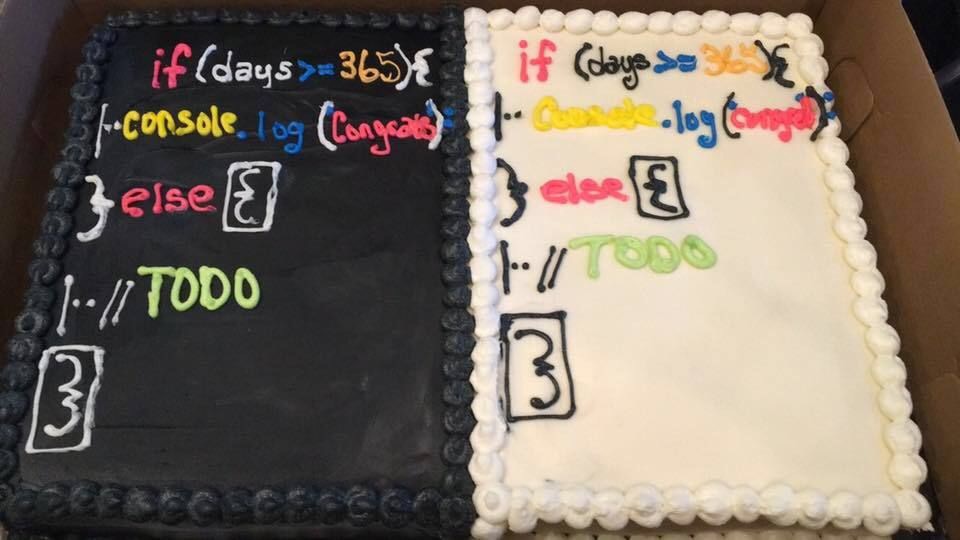 if (days >= 365){
|·· console.log ("Congrats");
} else {
|·· // TODO
}
if (days >= 365){
|·· Console.log ("congrats");
} else {
|·· // TODO
}